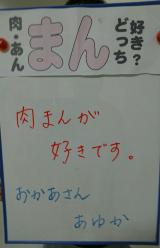 肉・あん
まん
どっち
好き?
肉まんが
好きです。
おかあさん
あゆか